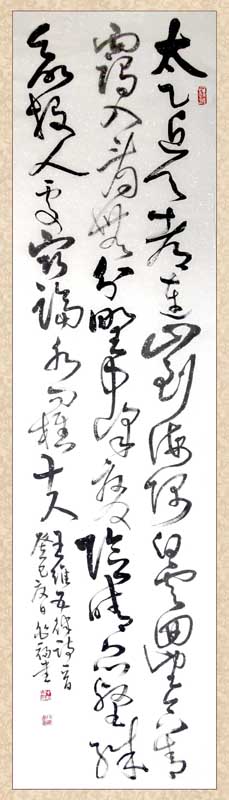 太乙近天都連山到海隅白雲回望合青
靄入看無分野中峰變陰晴眾壑殊
欲投人處宿隔水問樵夫
王維五律詩一首
癸巳夏日